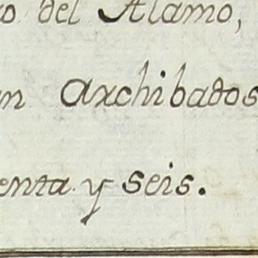 o del Alamo,
n Archibados
enta y seis.